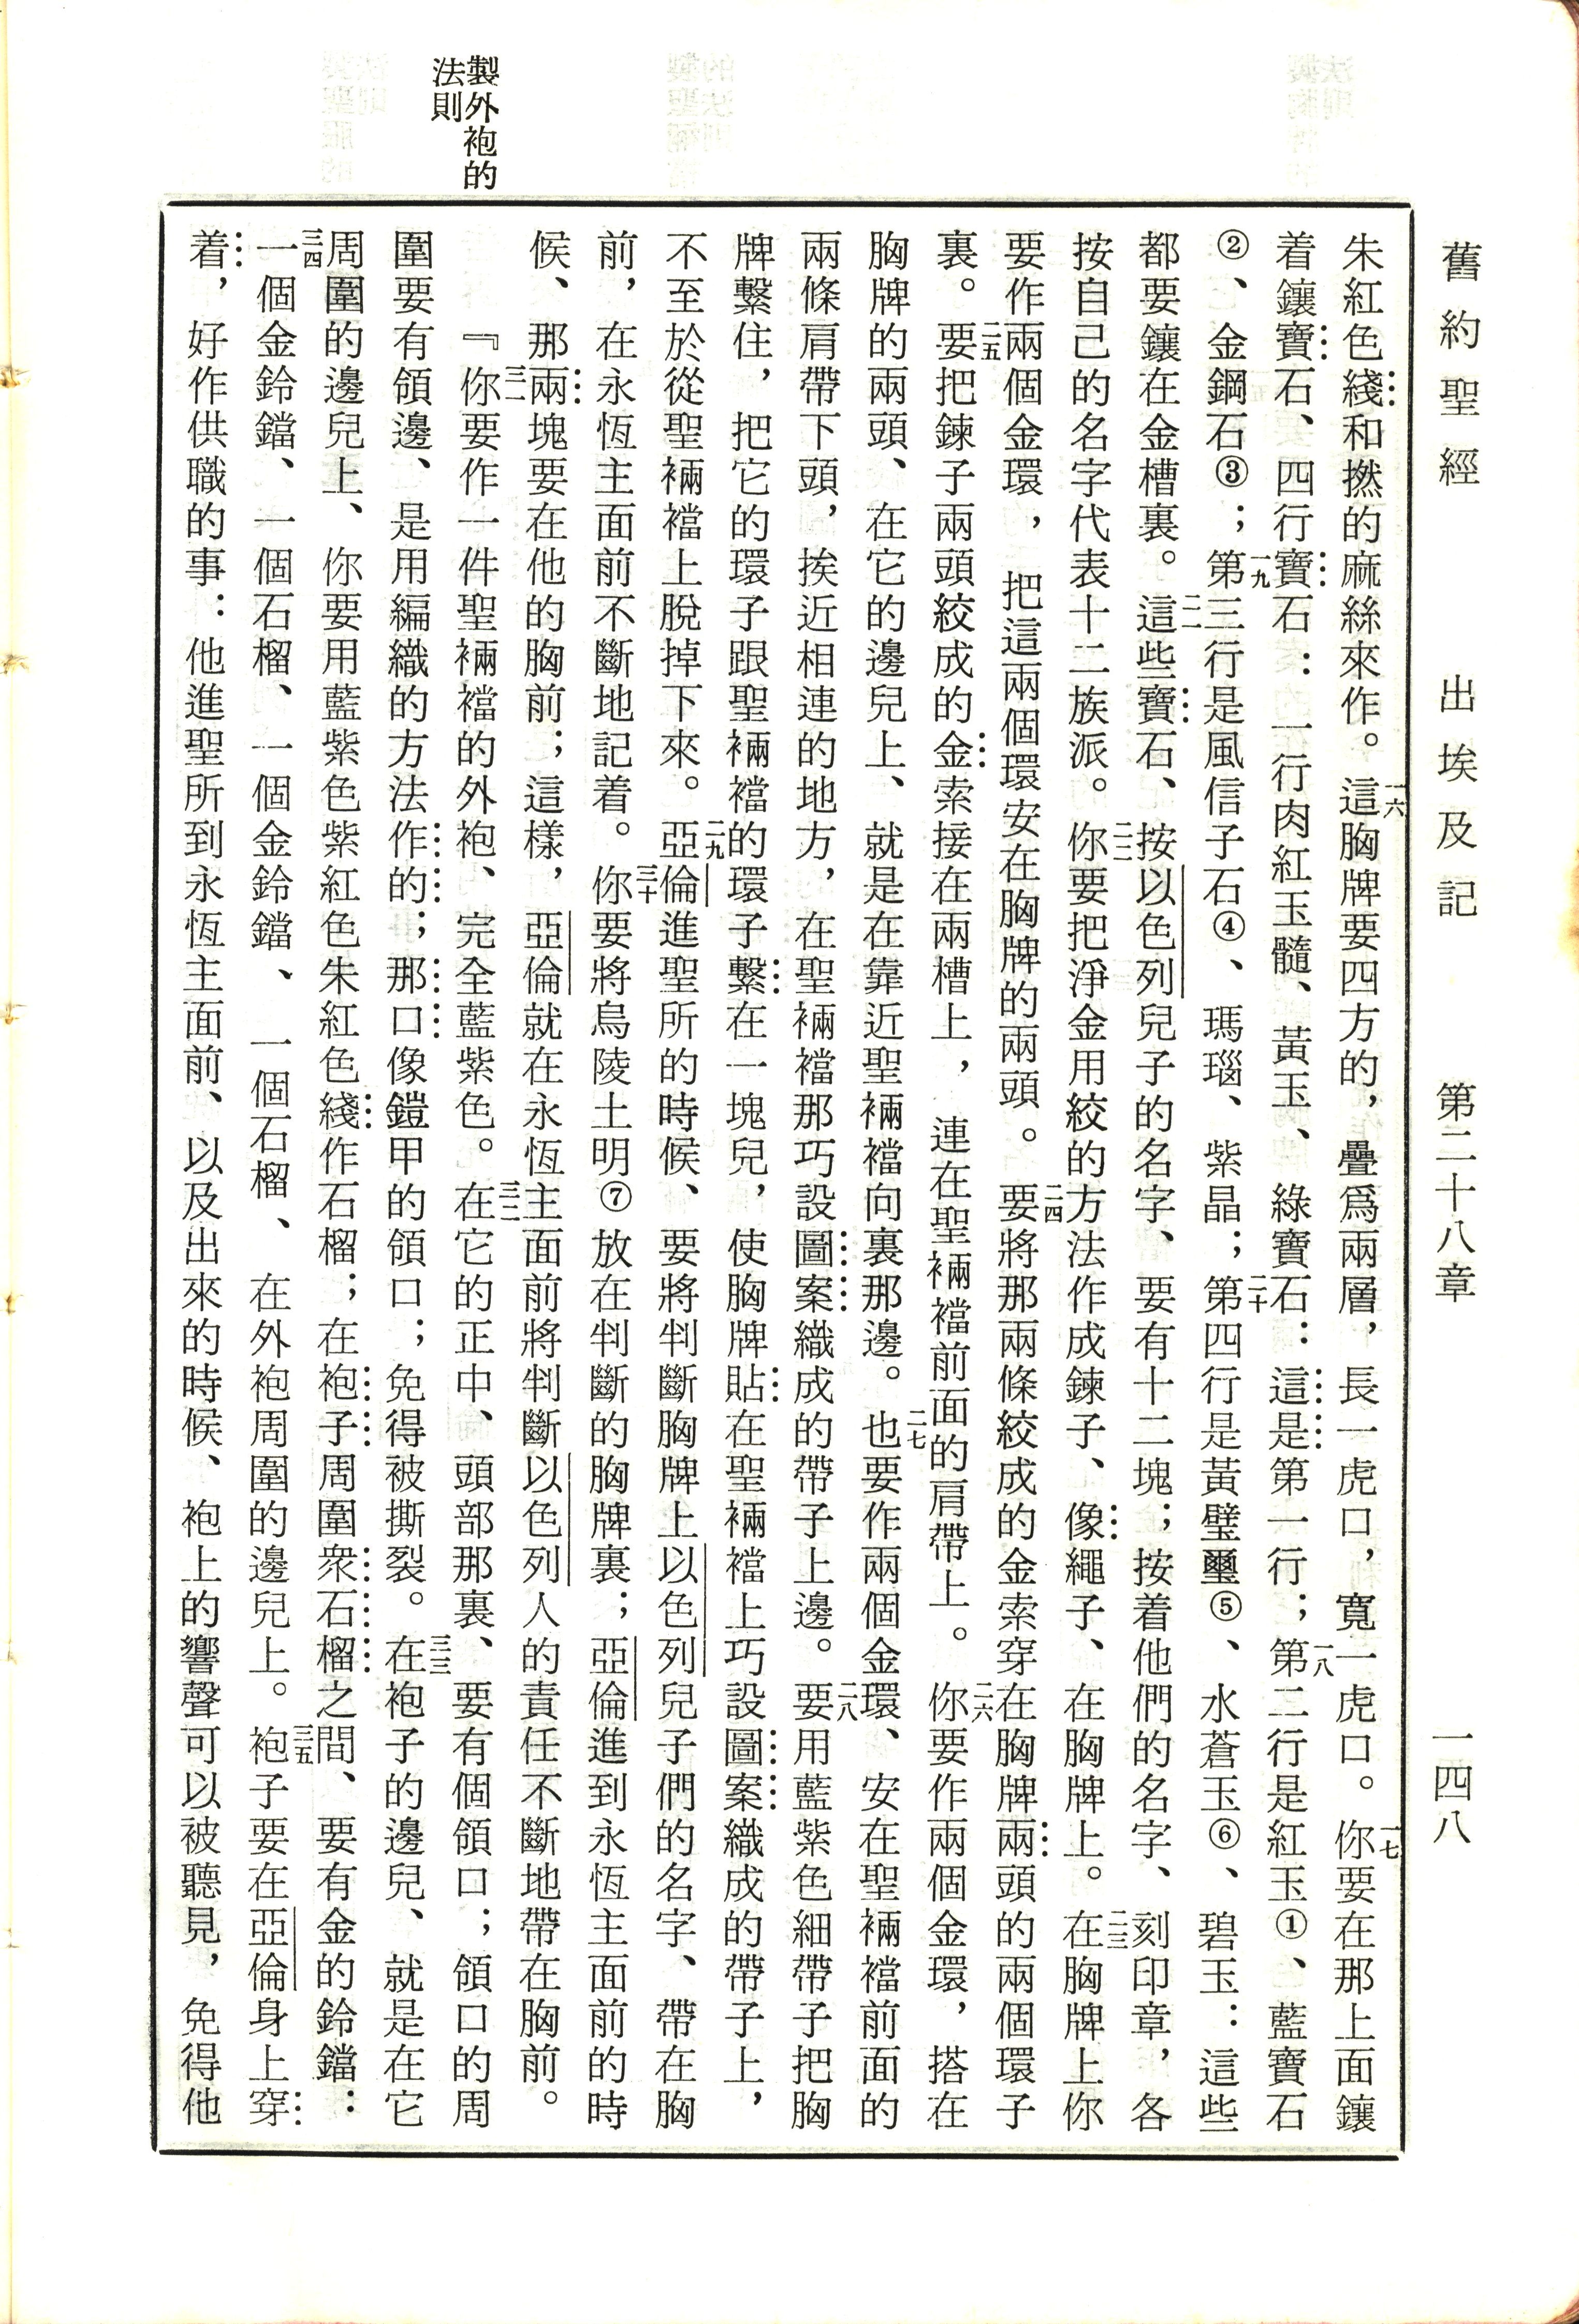 舊約聖經　出埃及記　第二十八章　一四八
朱紅色綫和撚的麻絲來作。一六這胸牌要四方的，疊爲兩層，長一虎口，寬一虎口。一七你要在那上面鑲
着鑲寶石、四行寶石：一行肉紅玉髓、黃玉、綠寶石：這是第一行；一八第二行是紅玉①、藍寶石
②、金鋼石③；一九第三行是風信子石④、瑪瑙、紫晶；二十第四行是黃璧璽⑤、水蒼玉⑥、碧玉：這些
都要鑲在金槽裏。二一這些寶石、按以色列兒子的名字、要有十二塊；按着他們的名字、刻印章，各
按自己的名字代表十二族派。二二你要把淨金用絞的方法作成鍊子、像繩子、在胸牌上。二三在胸牌上你
要作兩個金環，把這兩個環安在胸牌的兩頭。二四要將那兩條絞成的金索穿在胸牌兩頭的兩個環子
裏。二五要把鍊子兩頭絞成的金索接在兩槽上，連在聖裲襠前面的肩帶上。二六你要作兩個金環，搭在
胸牌的兩頭、在它的邊兒上、就是在靠近聖裲襠向裏那邊。二七也要作兩個金環、安在聖裲襠前面的
兩條肩帶下頭，挨近相連的地方，在聖裲襠那巧設圖案織成的帶子上邊。二八要用藍紫色細帶子把胸
牌繫住，把它的環子跟聖裲襠的環子繫在一塊兒，使胸牌貼在聖裲襠上巧設圖案織成的帶子上，
不至於從聖裲襠上脫掉下來。二九亞倫進聖所的時候、要將判斷胸牌上以色列兒子們的名字、帶在胸
前，在永恆主面前不斷地記着。三十你要將烏陵土明⑦放在判斷的胸牌裏；亞倫進到永恆主面前的時
候、那兩塊要在他的胸前；這樣，亞倫就在永恆主面前將判斷以色列人的責任不斷地帶在胸前。
製外袍的
法則
『三一你要作一件聖裲襠的外袍、完全藍紫色。三二在它的正中、頭部那裏、要有個領口；領口的周
圍要有領邊、是用編織的方法作的；那口像鎧甲的領口；免得被撕裂。三三在袍子的邊兒、就是在它
周圍的邊兒上、你要用藍紫色紫紅色朱紅色綫作石榴；在袍子周圍衆石榴之間、要有金的鈴鐺：
三四一個金鈴鐺、一個石榴、一個金鈴鐺、一個石榴、在外袍周圍的邊兒上。三五袍子要在亞倫身上穿
着，好作供職的事：他進聖所到永恆主面前、以及出來的時候、袍上的響聲可以被聽見，免得他